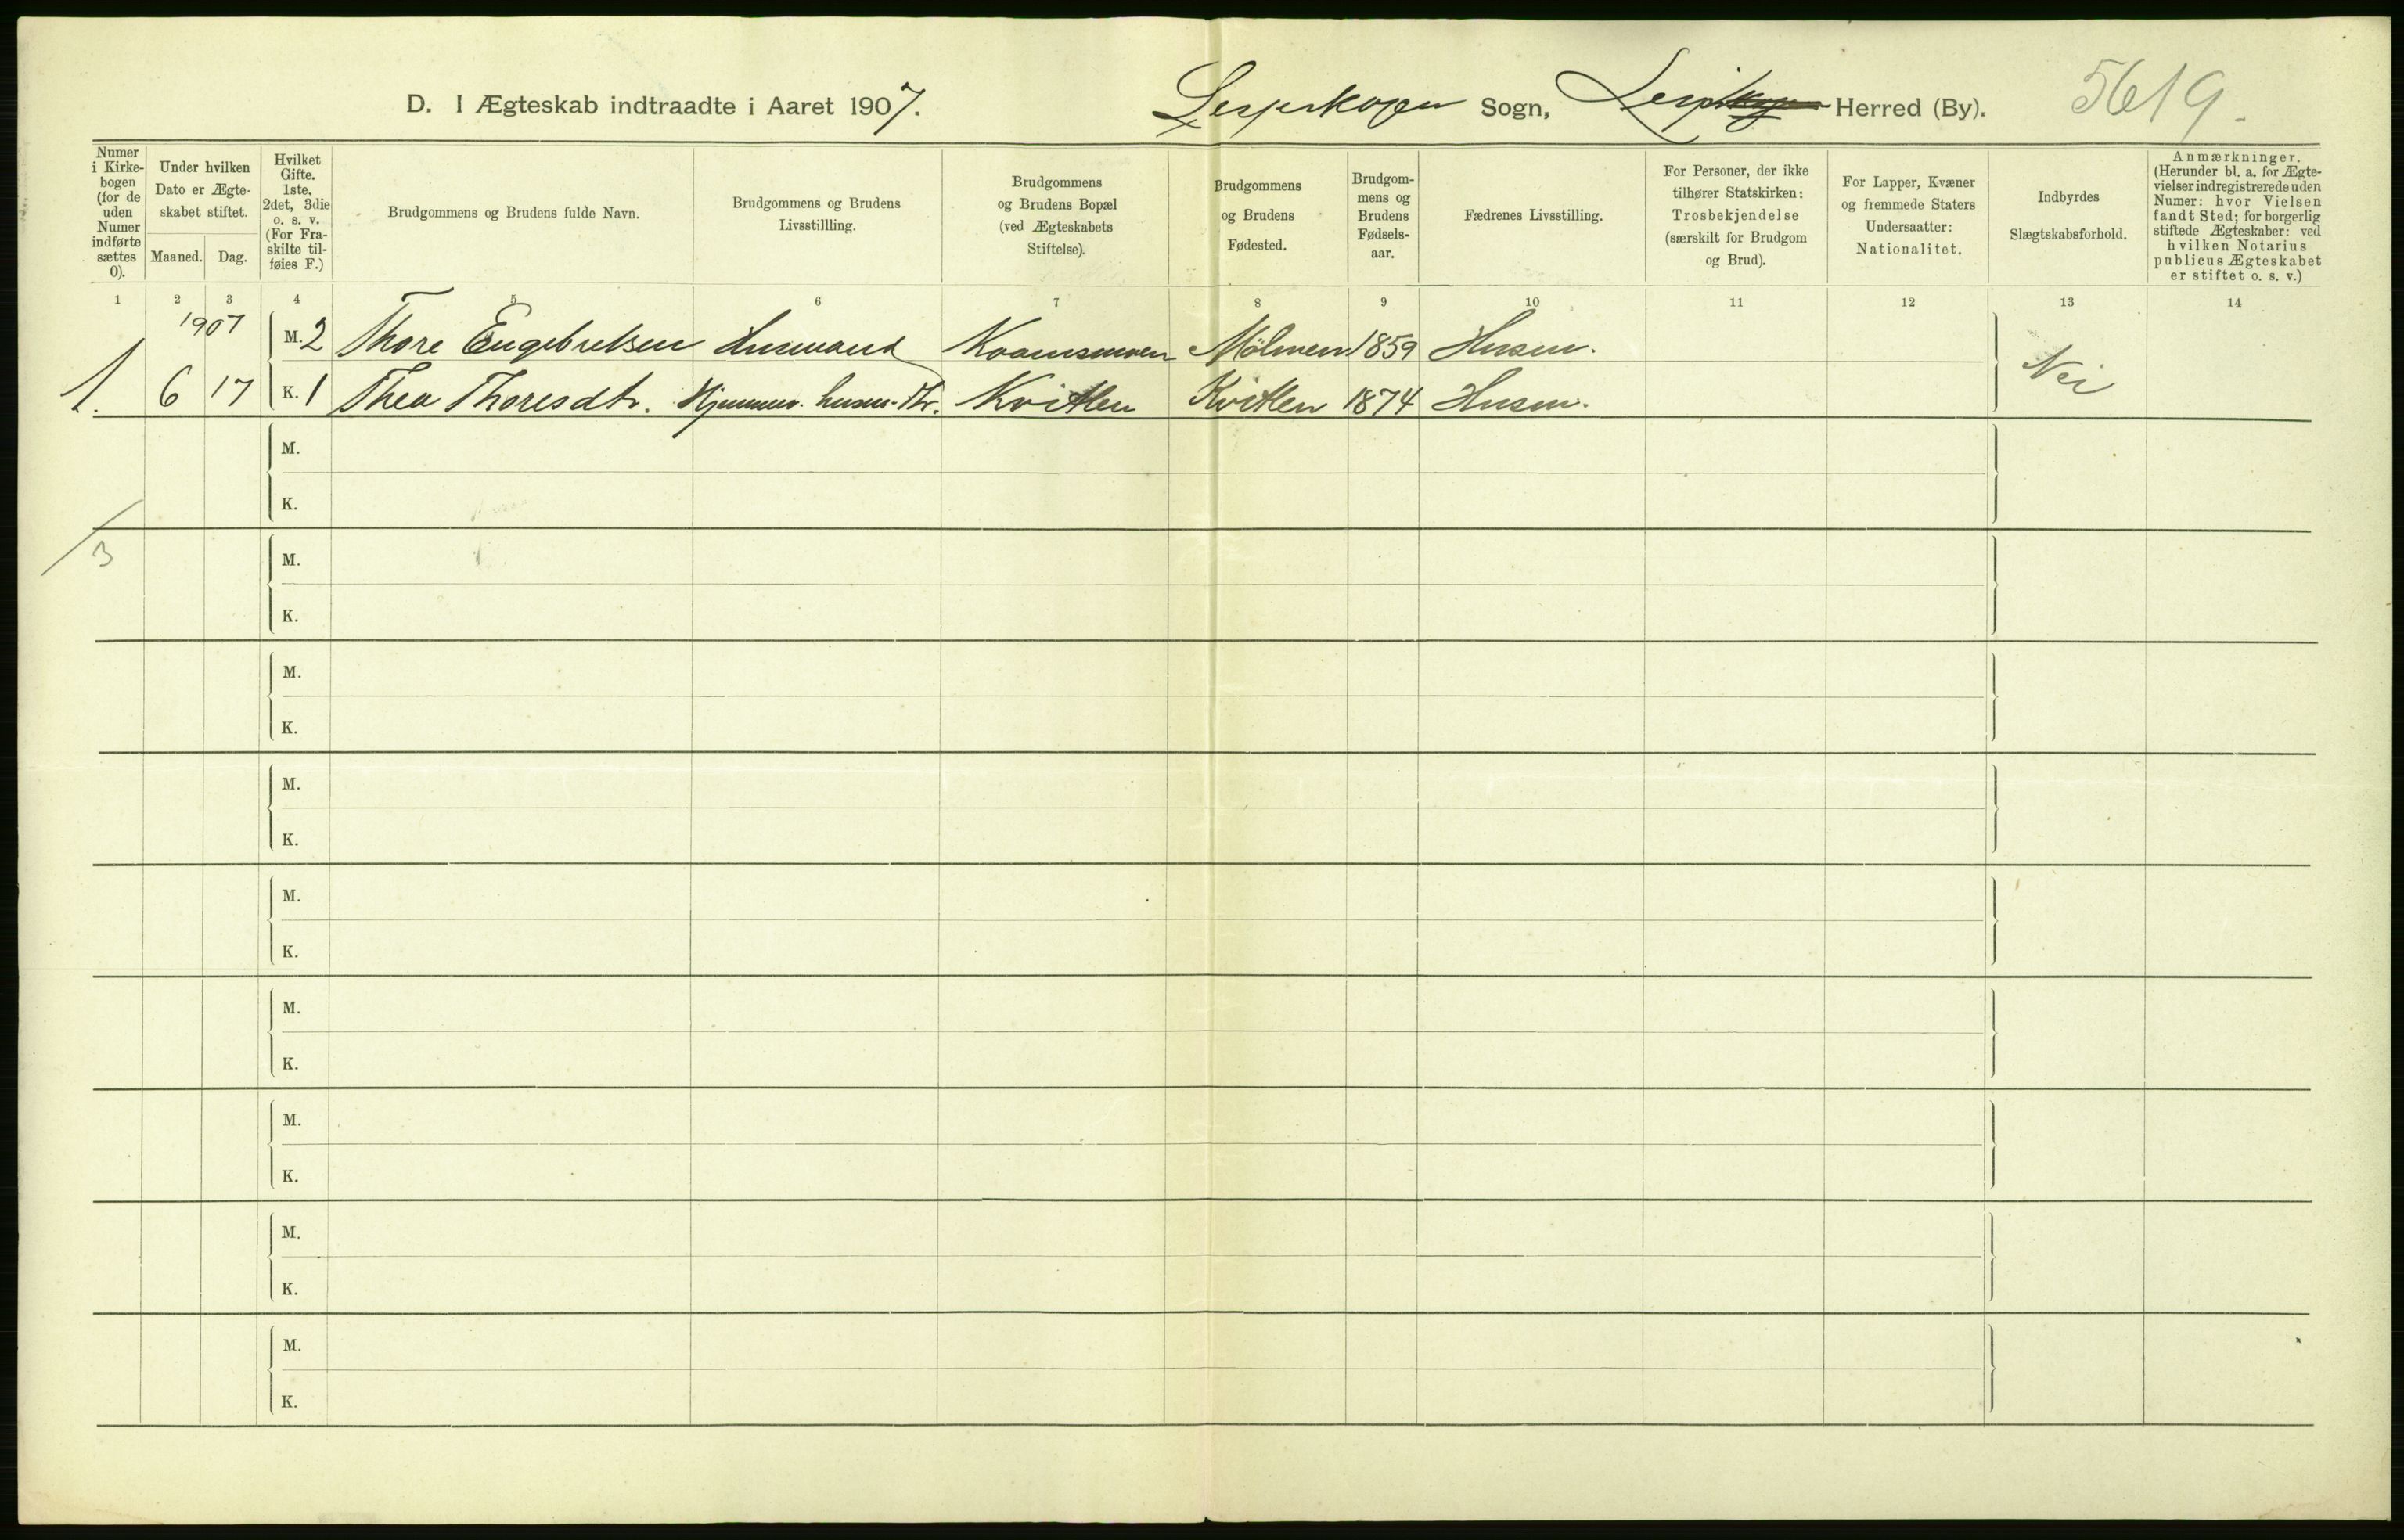 D. I Ægteskab indtraadte i Aaret 1907. Lesjeskogen Sogn, Lesje Herred (By). 5619.
Numer
i Kirke-
bogen
(for de
uden
Numer
indførte
sættes
0).
Under hvilken
Dato er Ægte-
skabet stiftet.
Maaned. Dag.
Hvilket
Gifte.
1ste,
2det, 3die
o. s. v.
(For Fra-
skilte til-
føies F.)
Brudgommens og Brudens fulde Navn.
Brudgommens og Brudens
Livsstillling.
Brudgommens
og Brudens Bopæl
(ved Ægteskabets
Stiftelse).
Brudgommens
og Brudens
Fødested.
Brudgom-
mens og
Brudens
Fødsels-
aar.
Fædrenes Livsstilling.
For Personer, der ikke
tilhører Statskirken:
Trosbekjendelse
(særskilt for Brudgom
og Brud).
For Lapper, Kvæner
og fremmede Staters
Undersaatter:
Nationalitet.
Indbyrdes
Slægtskabsforhold.
Anmærkninger.
(Herunder bl. a. for Ægte-
vielser indregistrerede uden
Numer: hvor Vielsen
fandt Sted; for borgerlig
stiftede Ægteskaber: ved
hvilken Notarius
publicus Ægteskabet
er stiftet o. s. v.)
1 2 3 4 5 6 7 8 9 10 11 12 13 14
1907
M. 2 Thore Engebretsen Husmand Mølmen 1859 Husm.
1. 6 17 K. 1 Thea Thoresdtr. Hjemmev. husm. dtr. Kvitlen Kvitlen 1874 Husm. Nei
M.
K.
3
M.
K.
M.
K.
M.
K.
M.
K.
M.
K.
M.
K.
M.
K.
M.
K.